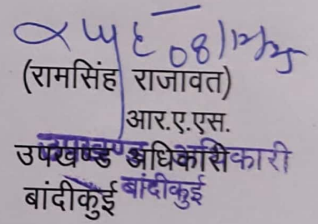 08/12/25
(रामसिंह राजावत)
आर.ए.एस.
उपखण्ड अधिकारी
बांदीकुई बांदीकुई